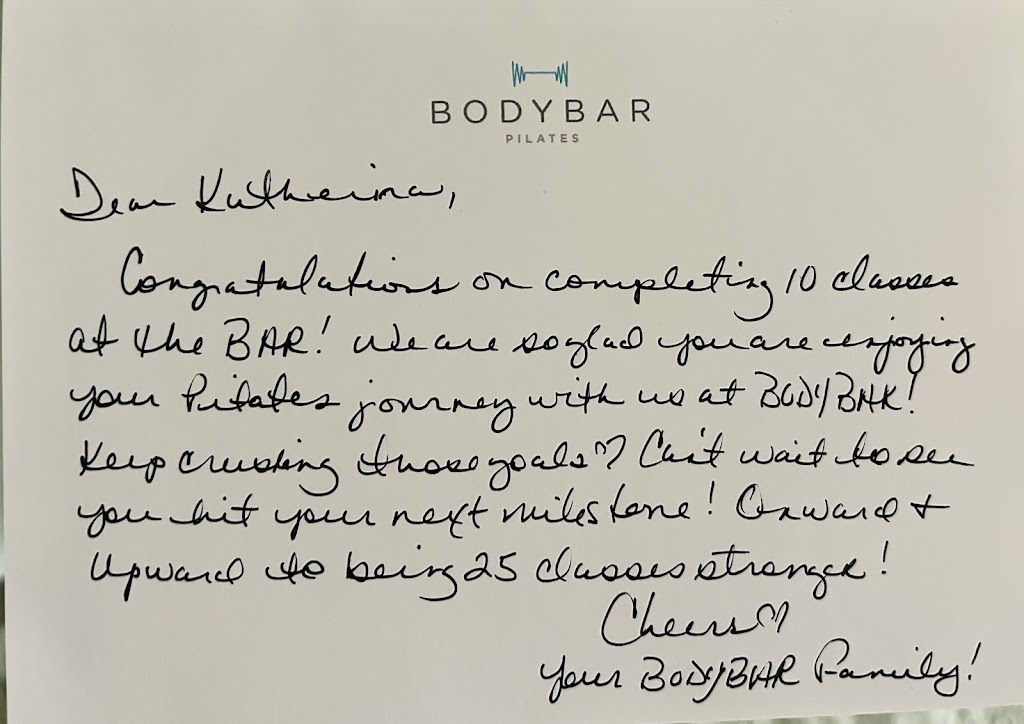 BODYBAR
PILATES
Dear Katherina,
Congratulations on completing 10 classes
at the BAR! We are so glad you are enjoying
your Pilates journey with us at BODYBAR!
Keep crushing those goals♡ Can't wait to see
you hit your next milestone! Onward +
Upward to being 25 classes stronger!
Cheers♡
Your BODYBAR Family!